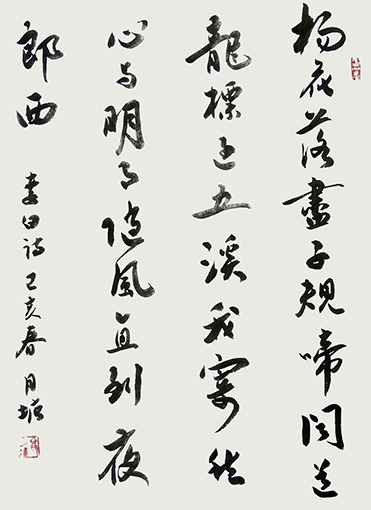 杨花落盡子規啼闻道
龍標过五溪我寄愁
心与明月随風直到夜
郎西
李白诗己亥春月塘